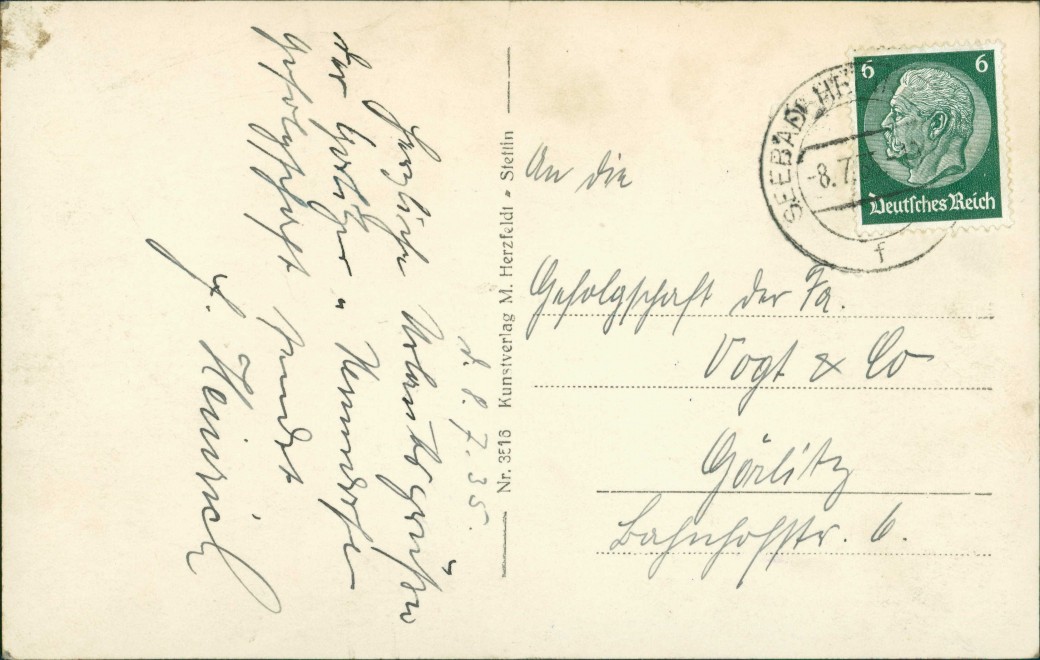 d. 8. 7. 35.
Herzliche Urlaubsgrüße
der Görlitzer u.
Gefolgschaft sendet
F. Heinrich
Nr. 3516 Kunstverlag M. Herzfeldt • Stettin
An die
Gefolgschaft der Fa.
Vogt & Co
Görlitz
Bahnhofstr. 6.
SEEBAD HE
-8.7.
f
6 6
Deutsches Reich